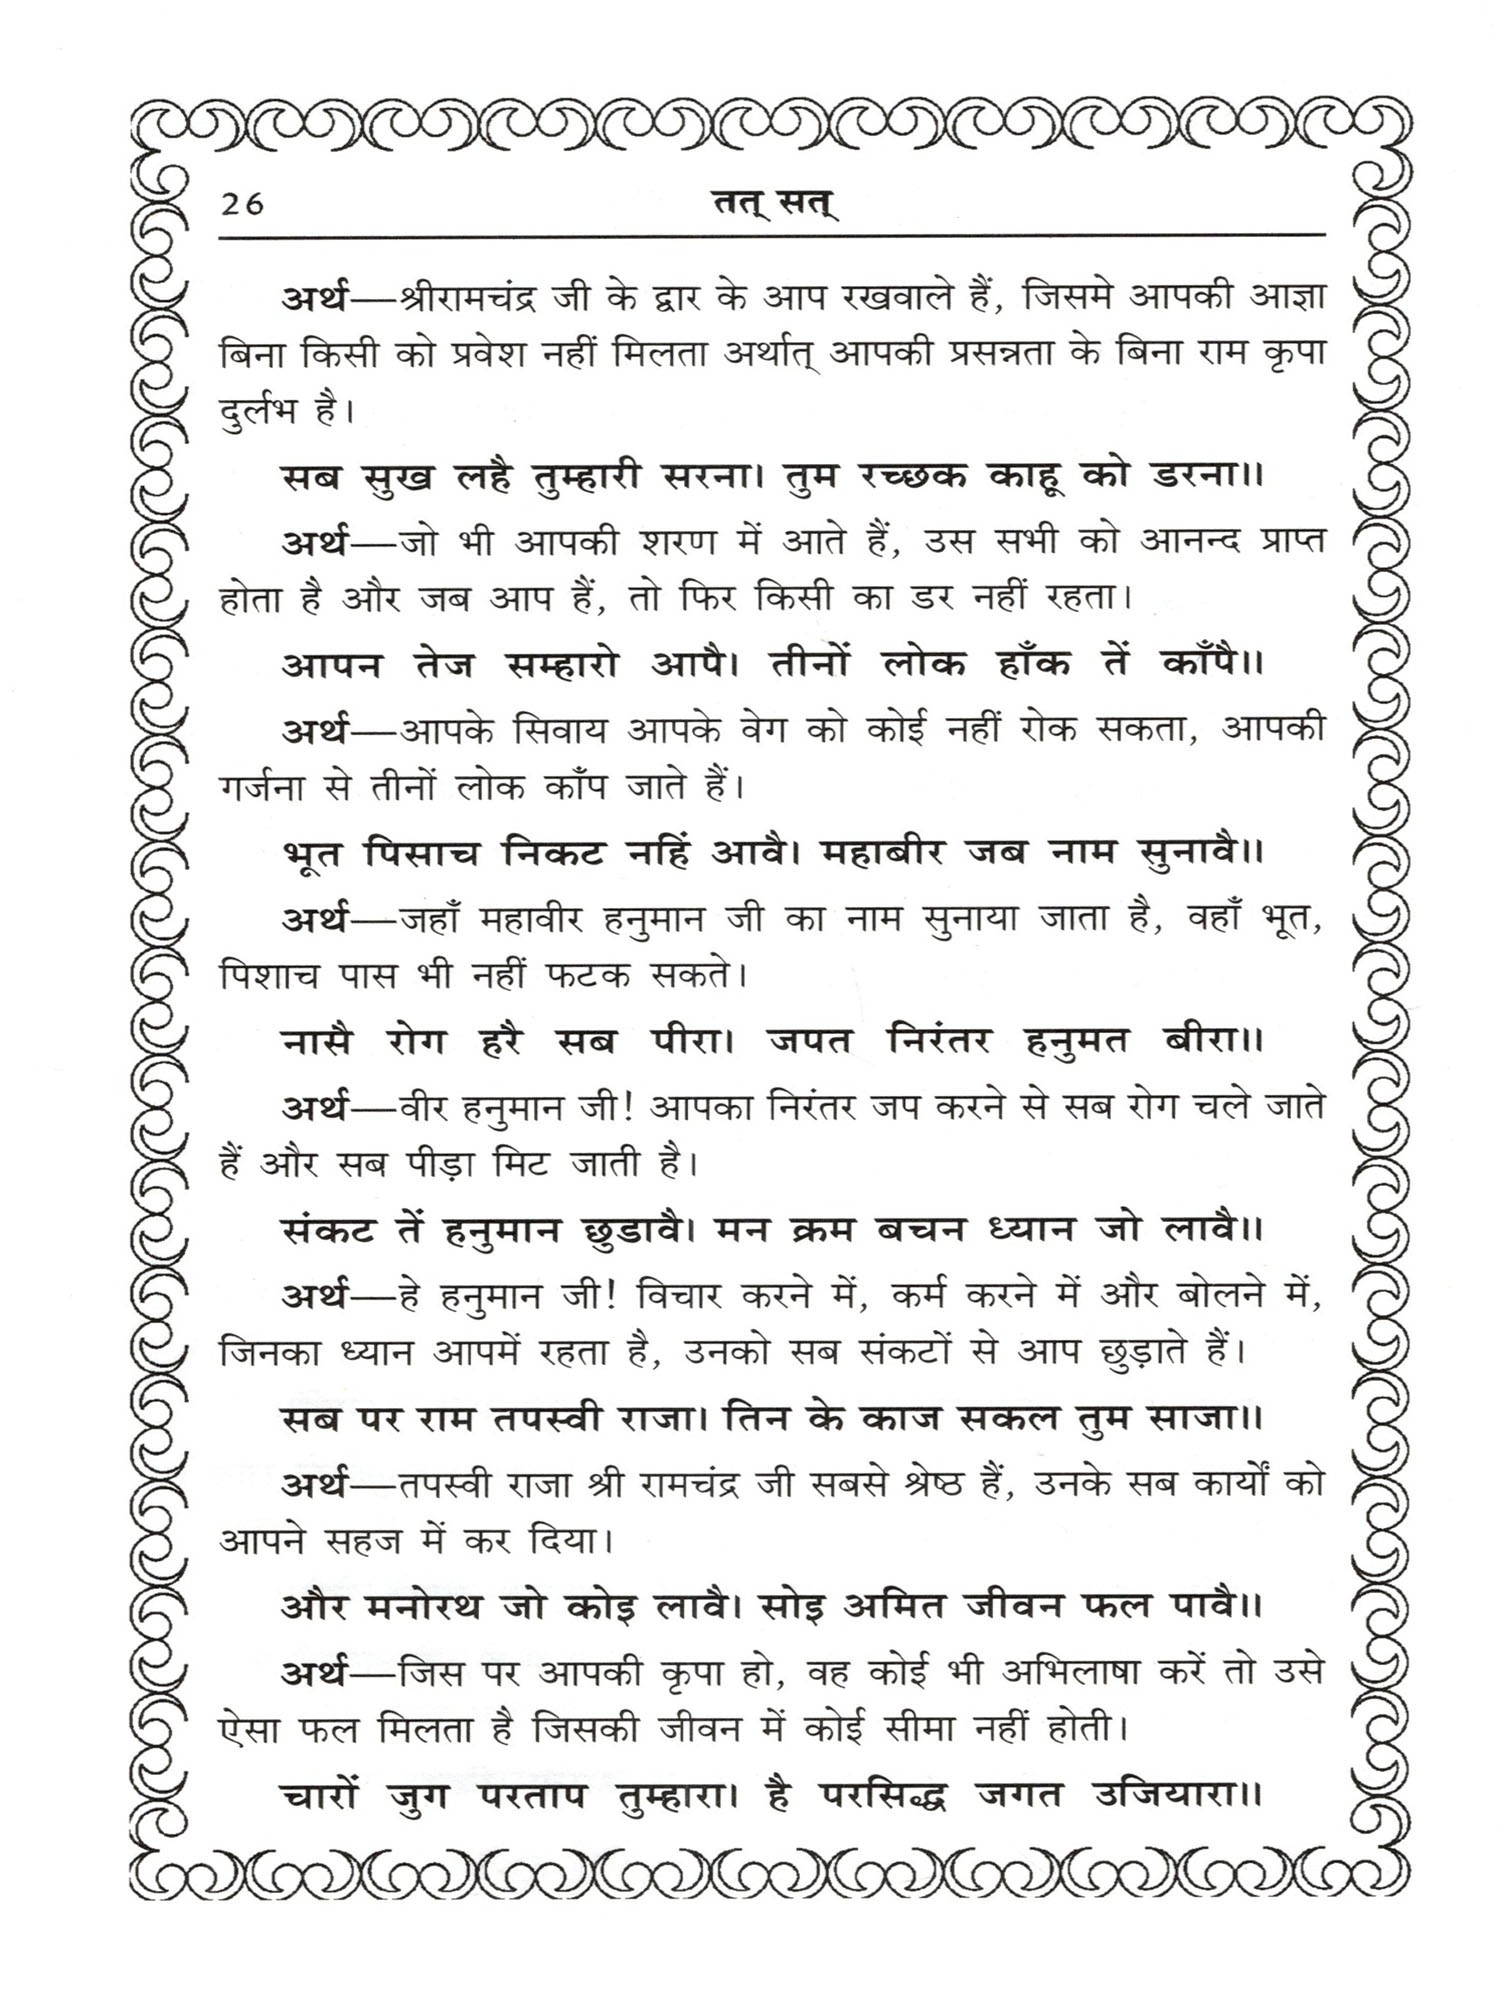 26
तत् सत्
अर्थ—श्रीरामचंद्र जी के द्वार के आप रखवाले हैं, जिसमे आपकी आज्ञा
बिना किसी को प्रवेश नहीं मिलता अर्थात् आपकी प्रसन्नता के बिना राम कृपा
दुर्लभ है।
सब सुख लहै तुम्हारी सरना। तुम रच्छक काहू को डरना॥
अर्थ—जो भी आपकी शरण में आते हैं, उस सभी को आनन्द प्राप्त
होता है और जब आप हैं, तो फिर किसी का डर नहीं रहता।
आपन तेज सम्हारो आपै। तीनों लोक हाँक तें काँपै॥
अर्थ—आपके सिवाय आपके वेग को कोई नहीं रोक सकता, आपकी
गर्जना से तीनों लोक काँप जाते हैं।
भूत पिसाच निकट नहिं आवै। महाबीर जब नाम सुनावै॥
अर्थ—जहाँ महावीर हनुमान जी का नाम सुनाया जाता है, वहाँ भूत,
पिशाच पास भी नहीं फटक सकते।
नासै रोग हरै सब पीरा। जपत निरंतर हनुमत बीरा॥
अर्थ—वीर हनुमान जी! आपका निरंतर जप करने से सब रोग चले जाते
हैं और सब पीड़ा मिट जाती है।
संकट तें हनुमान छुडावै। मन क्रम बचन ध्यान जो लावै॥
अर्थ—हे हनुमान जी! विचार करने में, कर्म करने में और बोलने में,
जिनका ध्यान आपमें रहता है, उनको सब संकटों से आप छुड़ाते हैं।
सब पर राम तपस्वी राजा। तिन के काज सकल तुम साजा॥
अर्थ—तपस्वी राजा श्री रामचंद्र जी सबसे श्रेष्ठ हैं, उनके सब कार्यों को
आपने सहज में कर दिया।
और मनोरथ जो कोइ लावै। सोइ अमित जीवन फल पावै॥
अर्थ—जिस पर आपकी कृपा हो, वह कोई भी अभिलाषा करें तो उसे
ऐसा फल मिलता है जिसकी जीवन में कोई सीमा नहीं होती।
चारों जुग परताप तुम्हारा। है परसिद्ध जगत उजियारा॥